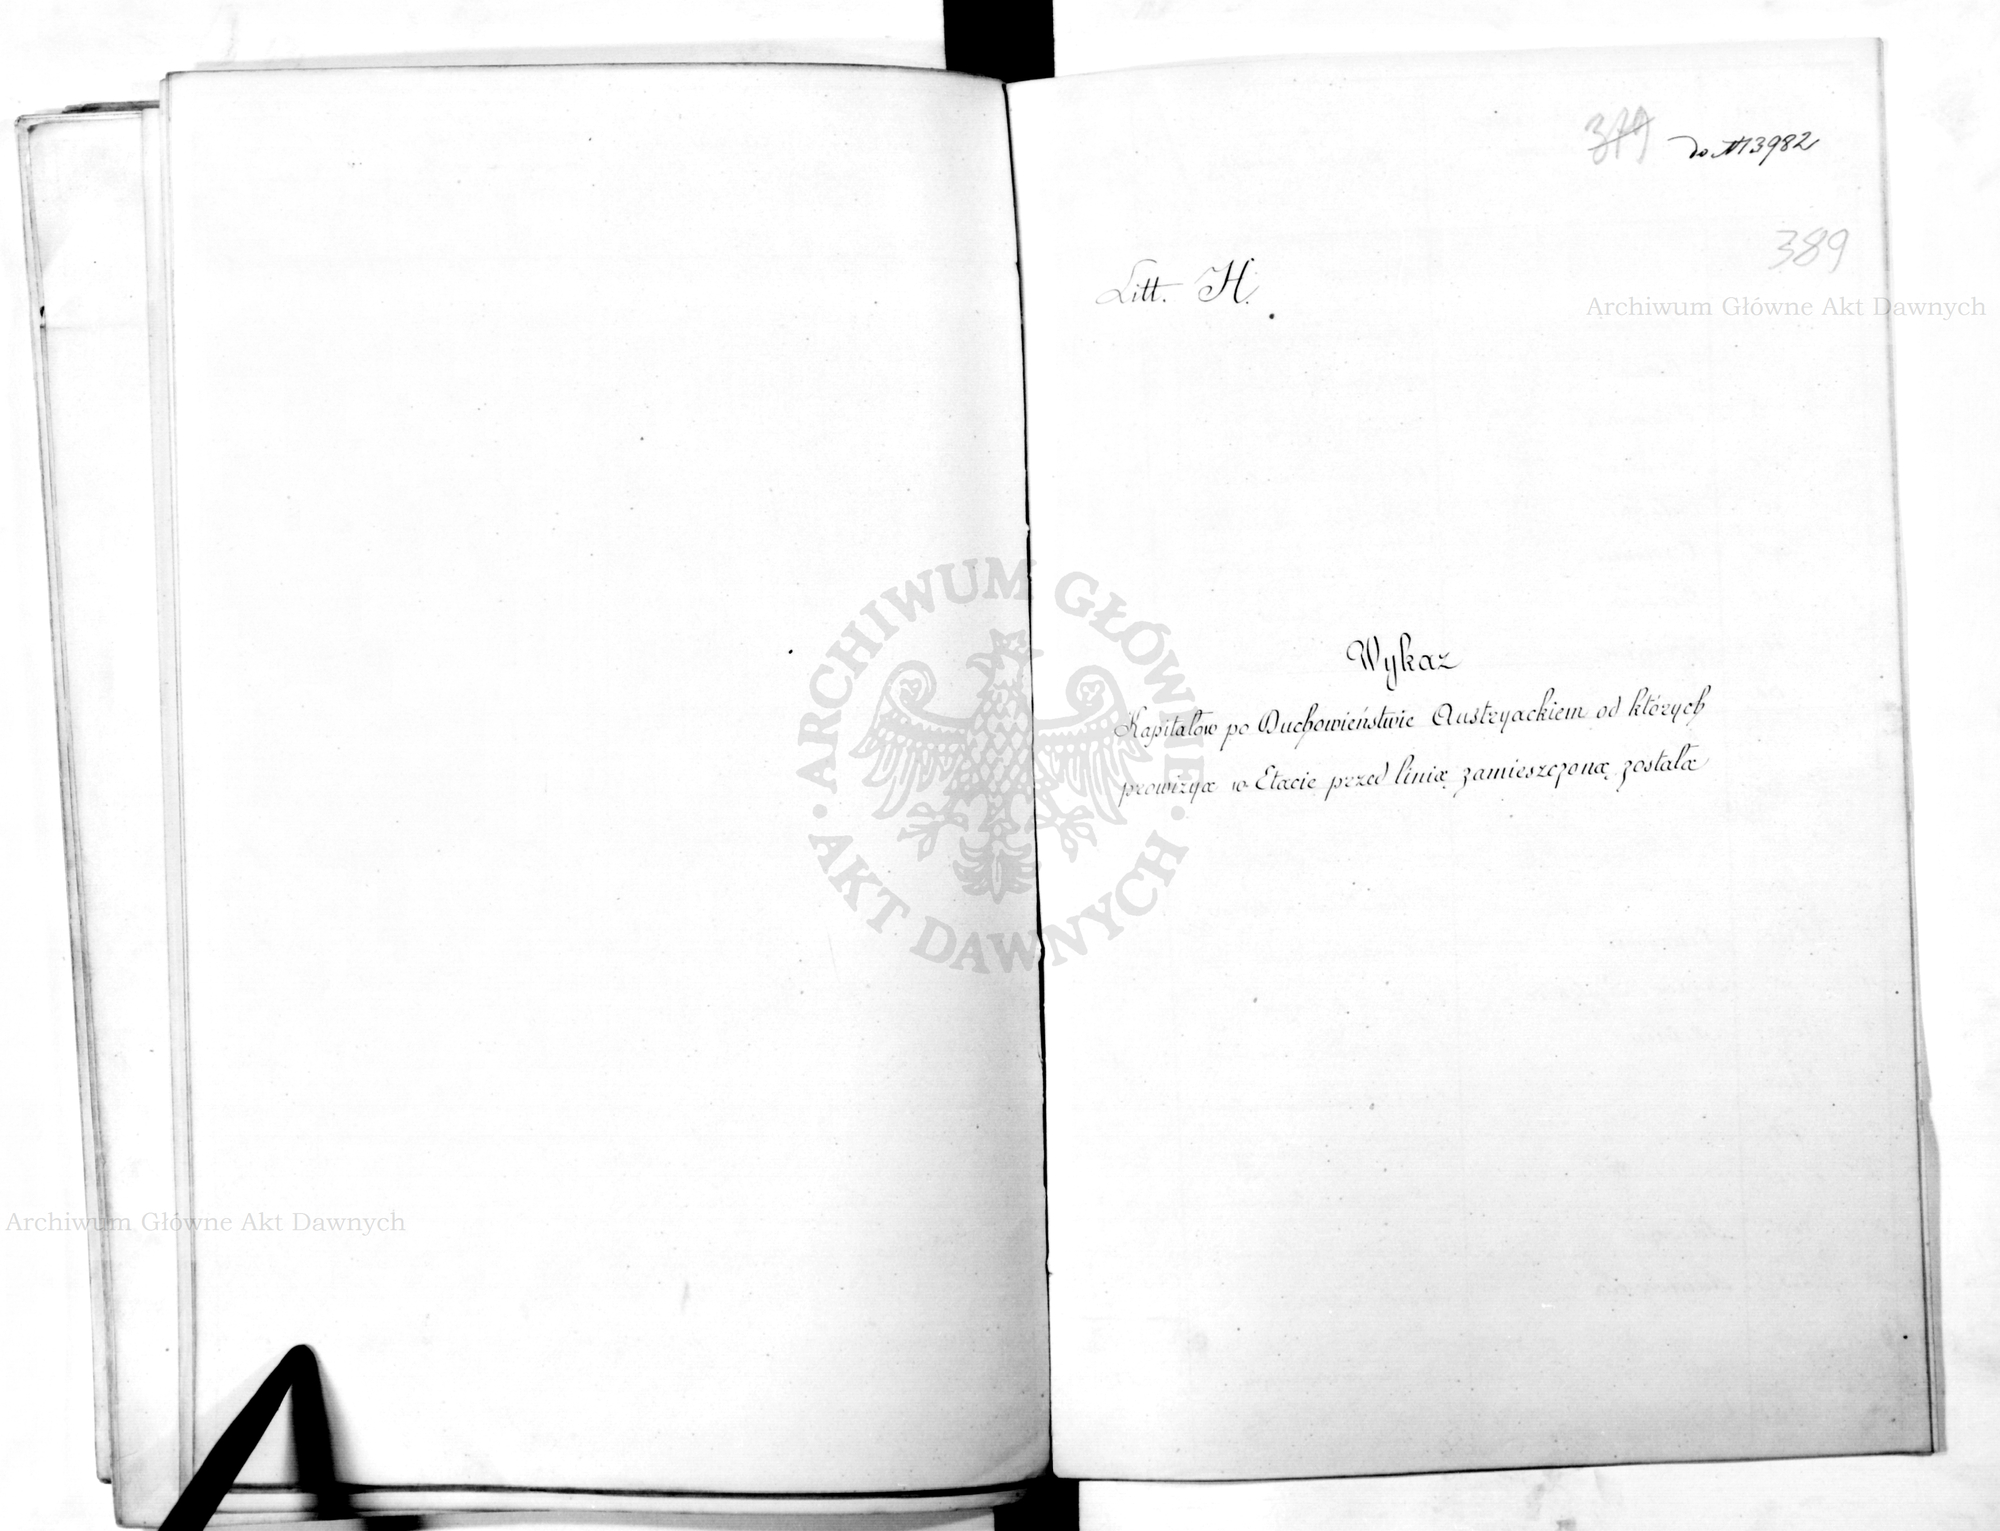 379 do № 3982
389
Litt. H.
Archiwum Główne Akt Dawnych
Wykaz
Kapitałów po Duchowieństwie Austryackiem od których
prowizya w Etacie przed linią zamieszczoną została
ARCHIWUM GŁÓWNE
AKT DAWNYCH
Archiwum Główne Akt Dawnych